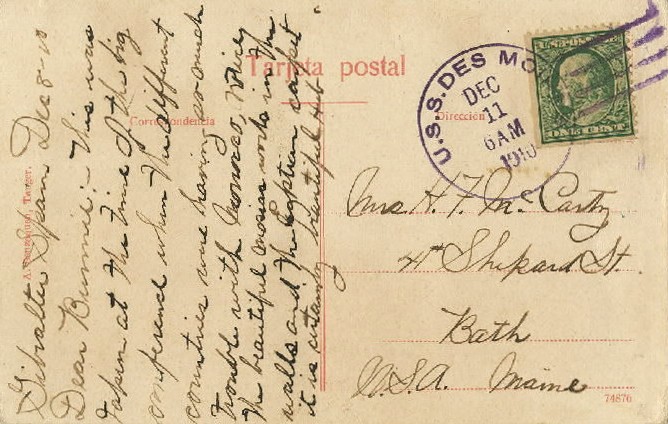 Tarjeta postal
Correspondencia
Dirección
U.S.S. DES MO
DEC
11
6AM
1910
ONE CENT
Gibralter Spain Dec 8-10
Dear Bunnie:- This was
taken at the time of the big
conference when the different
countries were having so much
trouble with Morocco, Notice
the beautiful mosiac work in the
walls and the Egyptian carpet
it is certainly beautiful
Mrs. H. F. McCarty
4 Shepard St.
Bath
U.S.A. Maine
Tanger.
74876